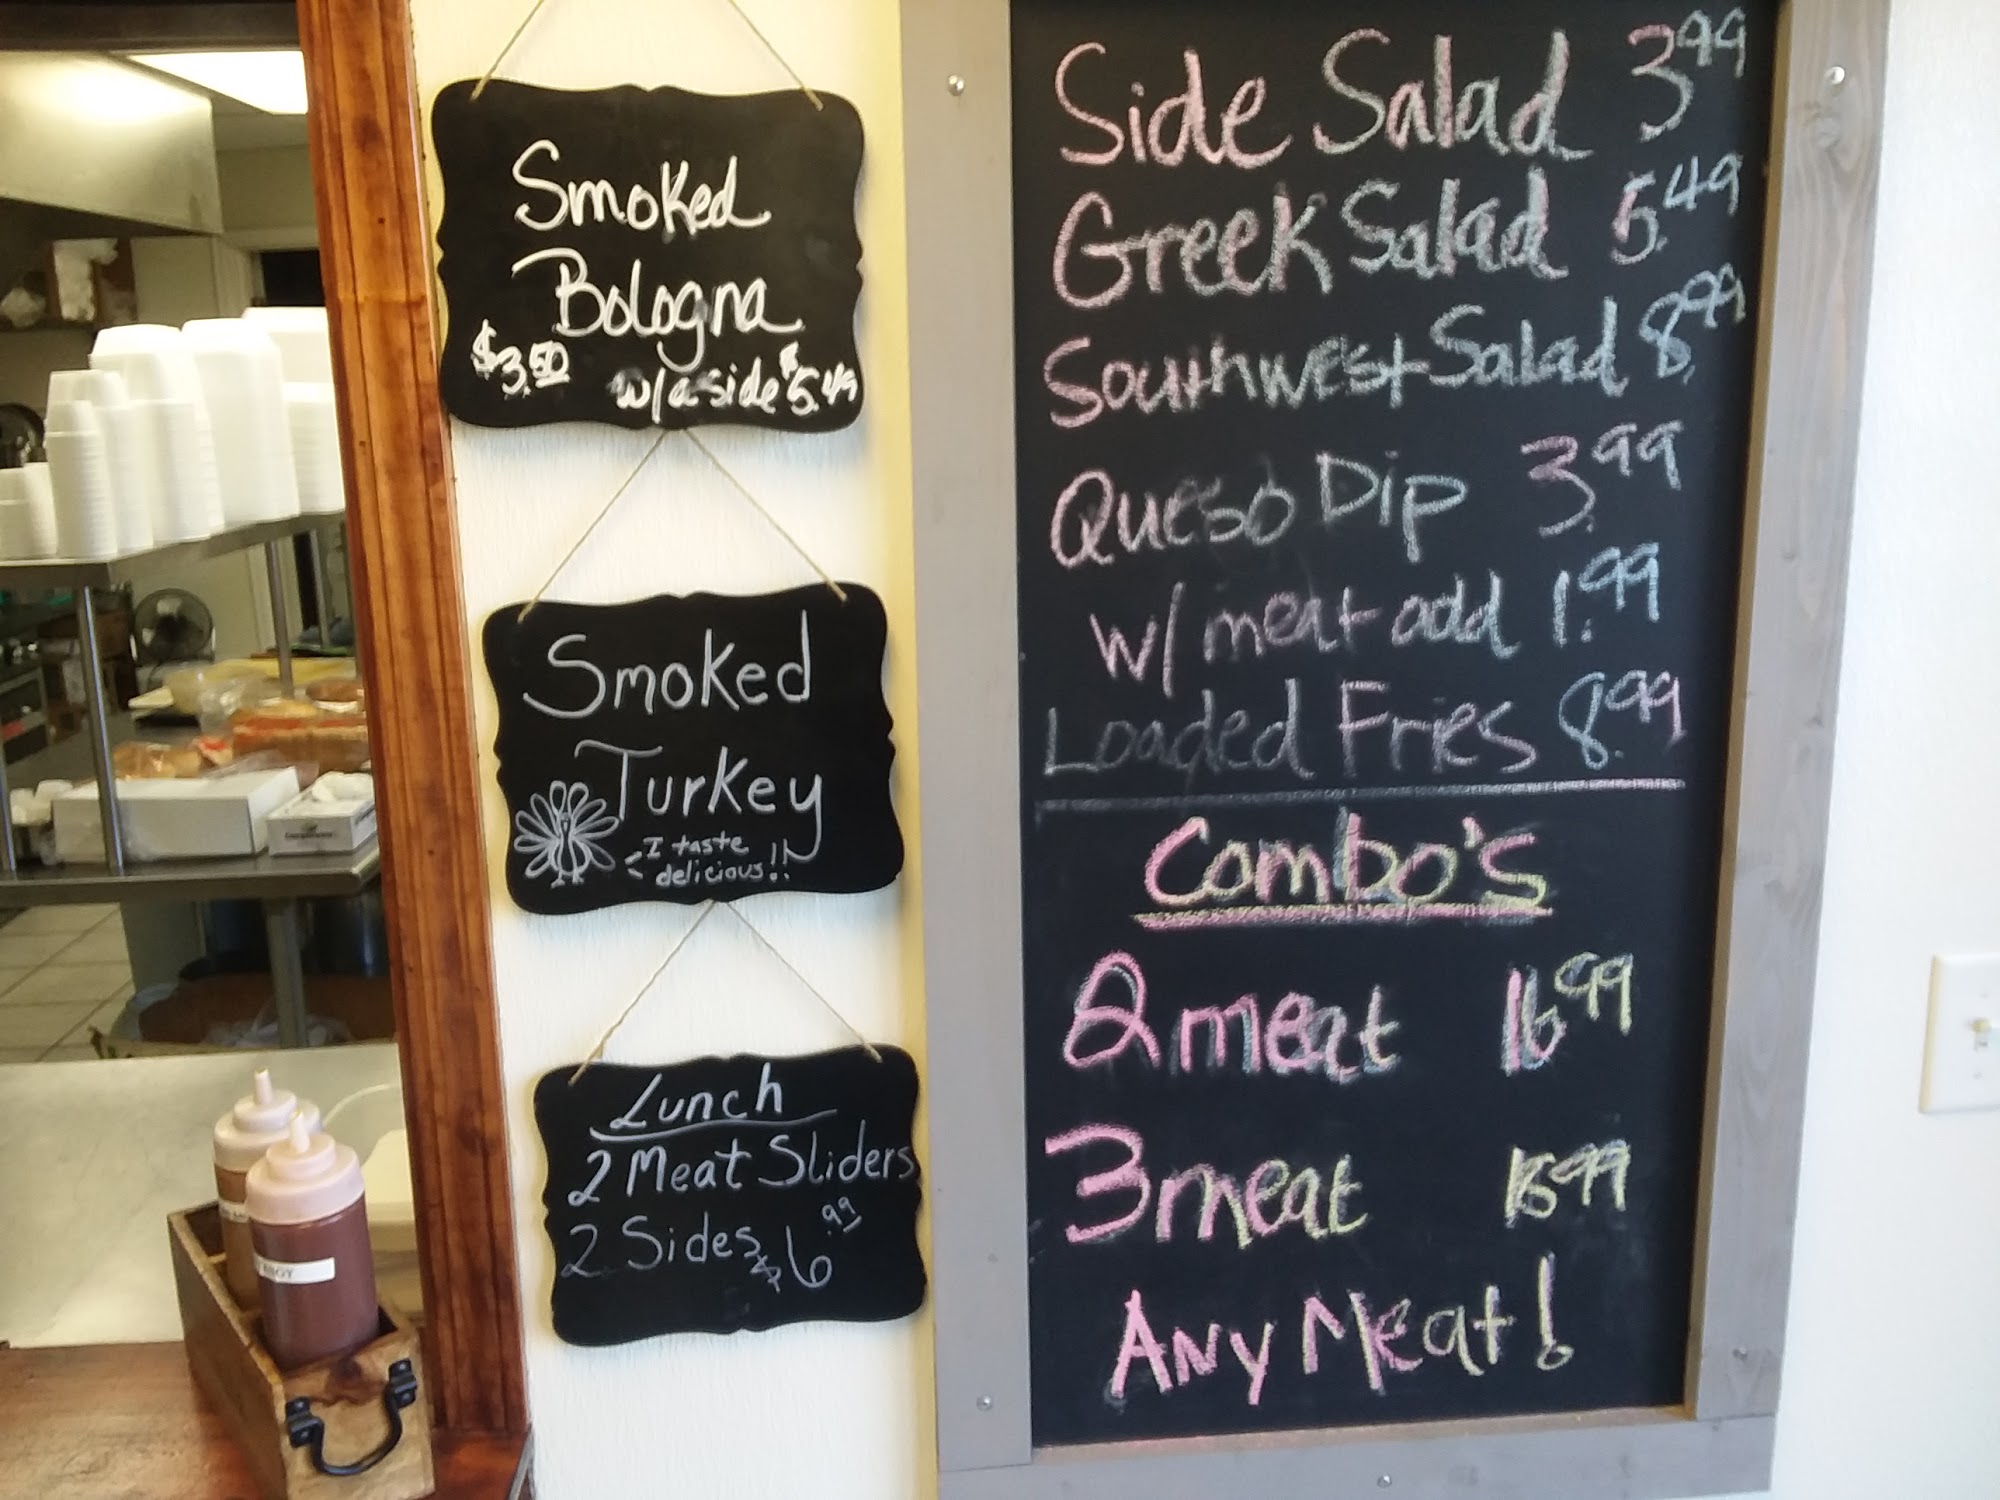 Smoked
Bologna
$3.50 w/a side $5.49
Smoked
Turkey
I taste
delicious!!
Lunch
2 Meat Sliders
2 Sides $6.99
Side Salad 3.99
Greek Salad 5.49
Southwest Salad 8.99
Queso Dip 3.99
w/ meat add 1.99
Loaded Fries 8.99
Combo's
2 meat 16.99
3 meat 18.99
Any Meat!